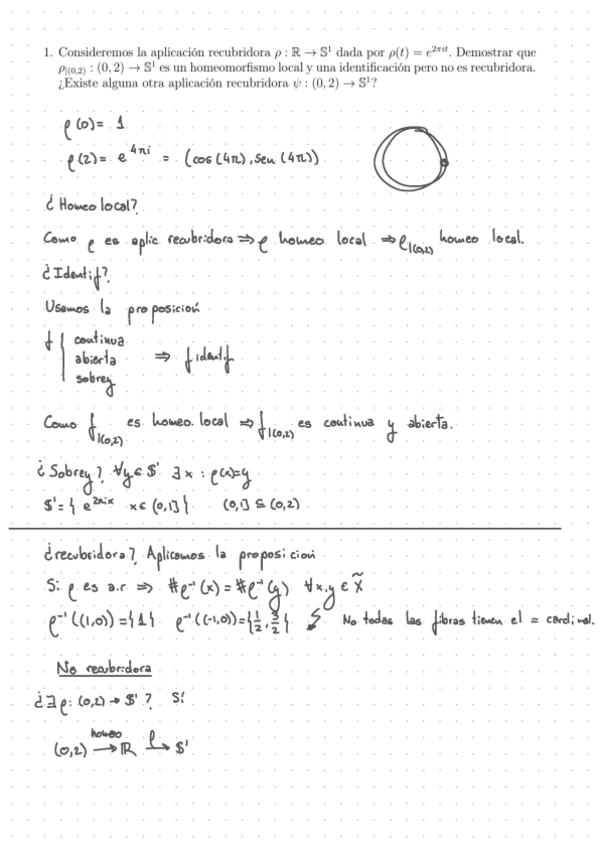 1. Consideremos la aplicación recubridora ρ : ℝ → 𝕊¹ dada por ρ(t) = e^{2πit}. Demostrar que
ρ|(0,2) : (0, 2) → 𝕊¹ es un homeomorfismo local y una identificación pero no es recubridora.
¿Existe alguna otra aplicación recubridora ψ : (0, 2) → 𝕊¹?
ρ(0) = 1
ρ(2) = e^{4πi} = (cos(4π), sen(4π))
¿Homeo local?
Como ρ es aplic recubridora ⇒ ρ homeo local ⇒ ρ|(0,2) homeo local.
¿Identif?
Usamos la proposición
f { continua
abierta ⇒ f identif
sobrey
Como f|(0,2) es homeo. local ⇒ f|(0,2) es continua y abierta.
¿Sobrey? ∀y∈𝕊¹ ∃x : ρ(x)=y
𝕊¹ = { e^{2πix} x∈(0,1] } (0,1] ⊆ (0,2)
¿recubridora? Aplicamos la proposición
Si ρ es a.r ⇒ #ρ⁻¹(x) = #ρ⁻¹(y) ∀x,y ∈ X̃
ρ⁻¹((1,0)) = {1} ρ⁻¹((-1,0)) = {1/2, 3/2} ↯ No todas las fibras tienen el = cardinal.
No recubridora
¿∃ρ: (0,2) → 𝕊¹? Sí
(0,2) →^{homeo} ℝ →^{ρ} 𝕊¹